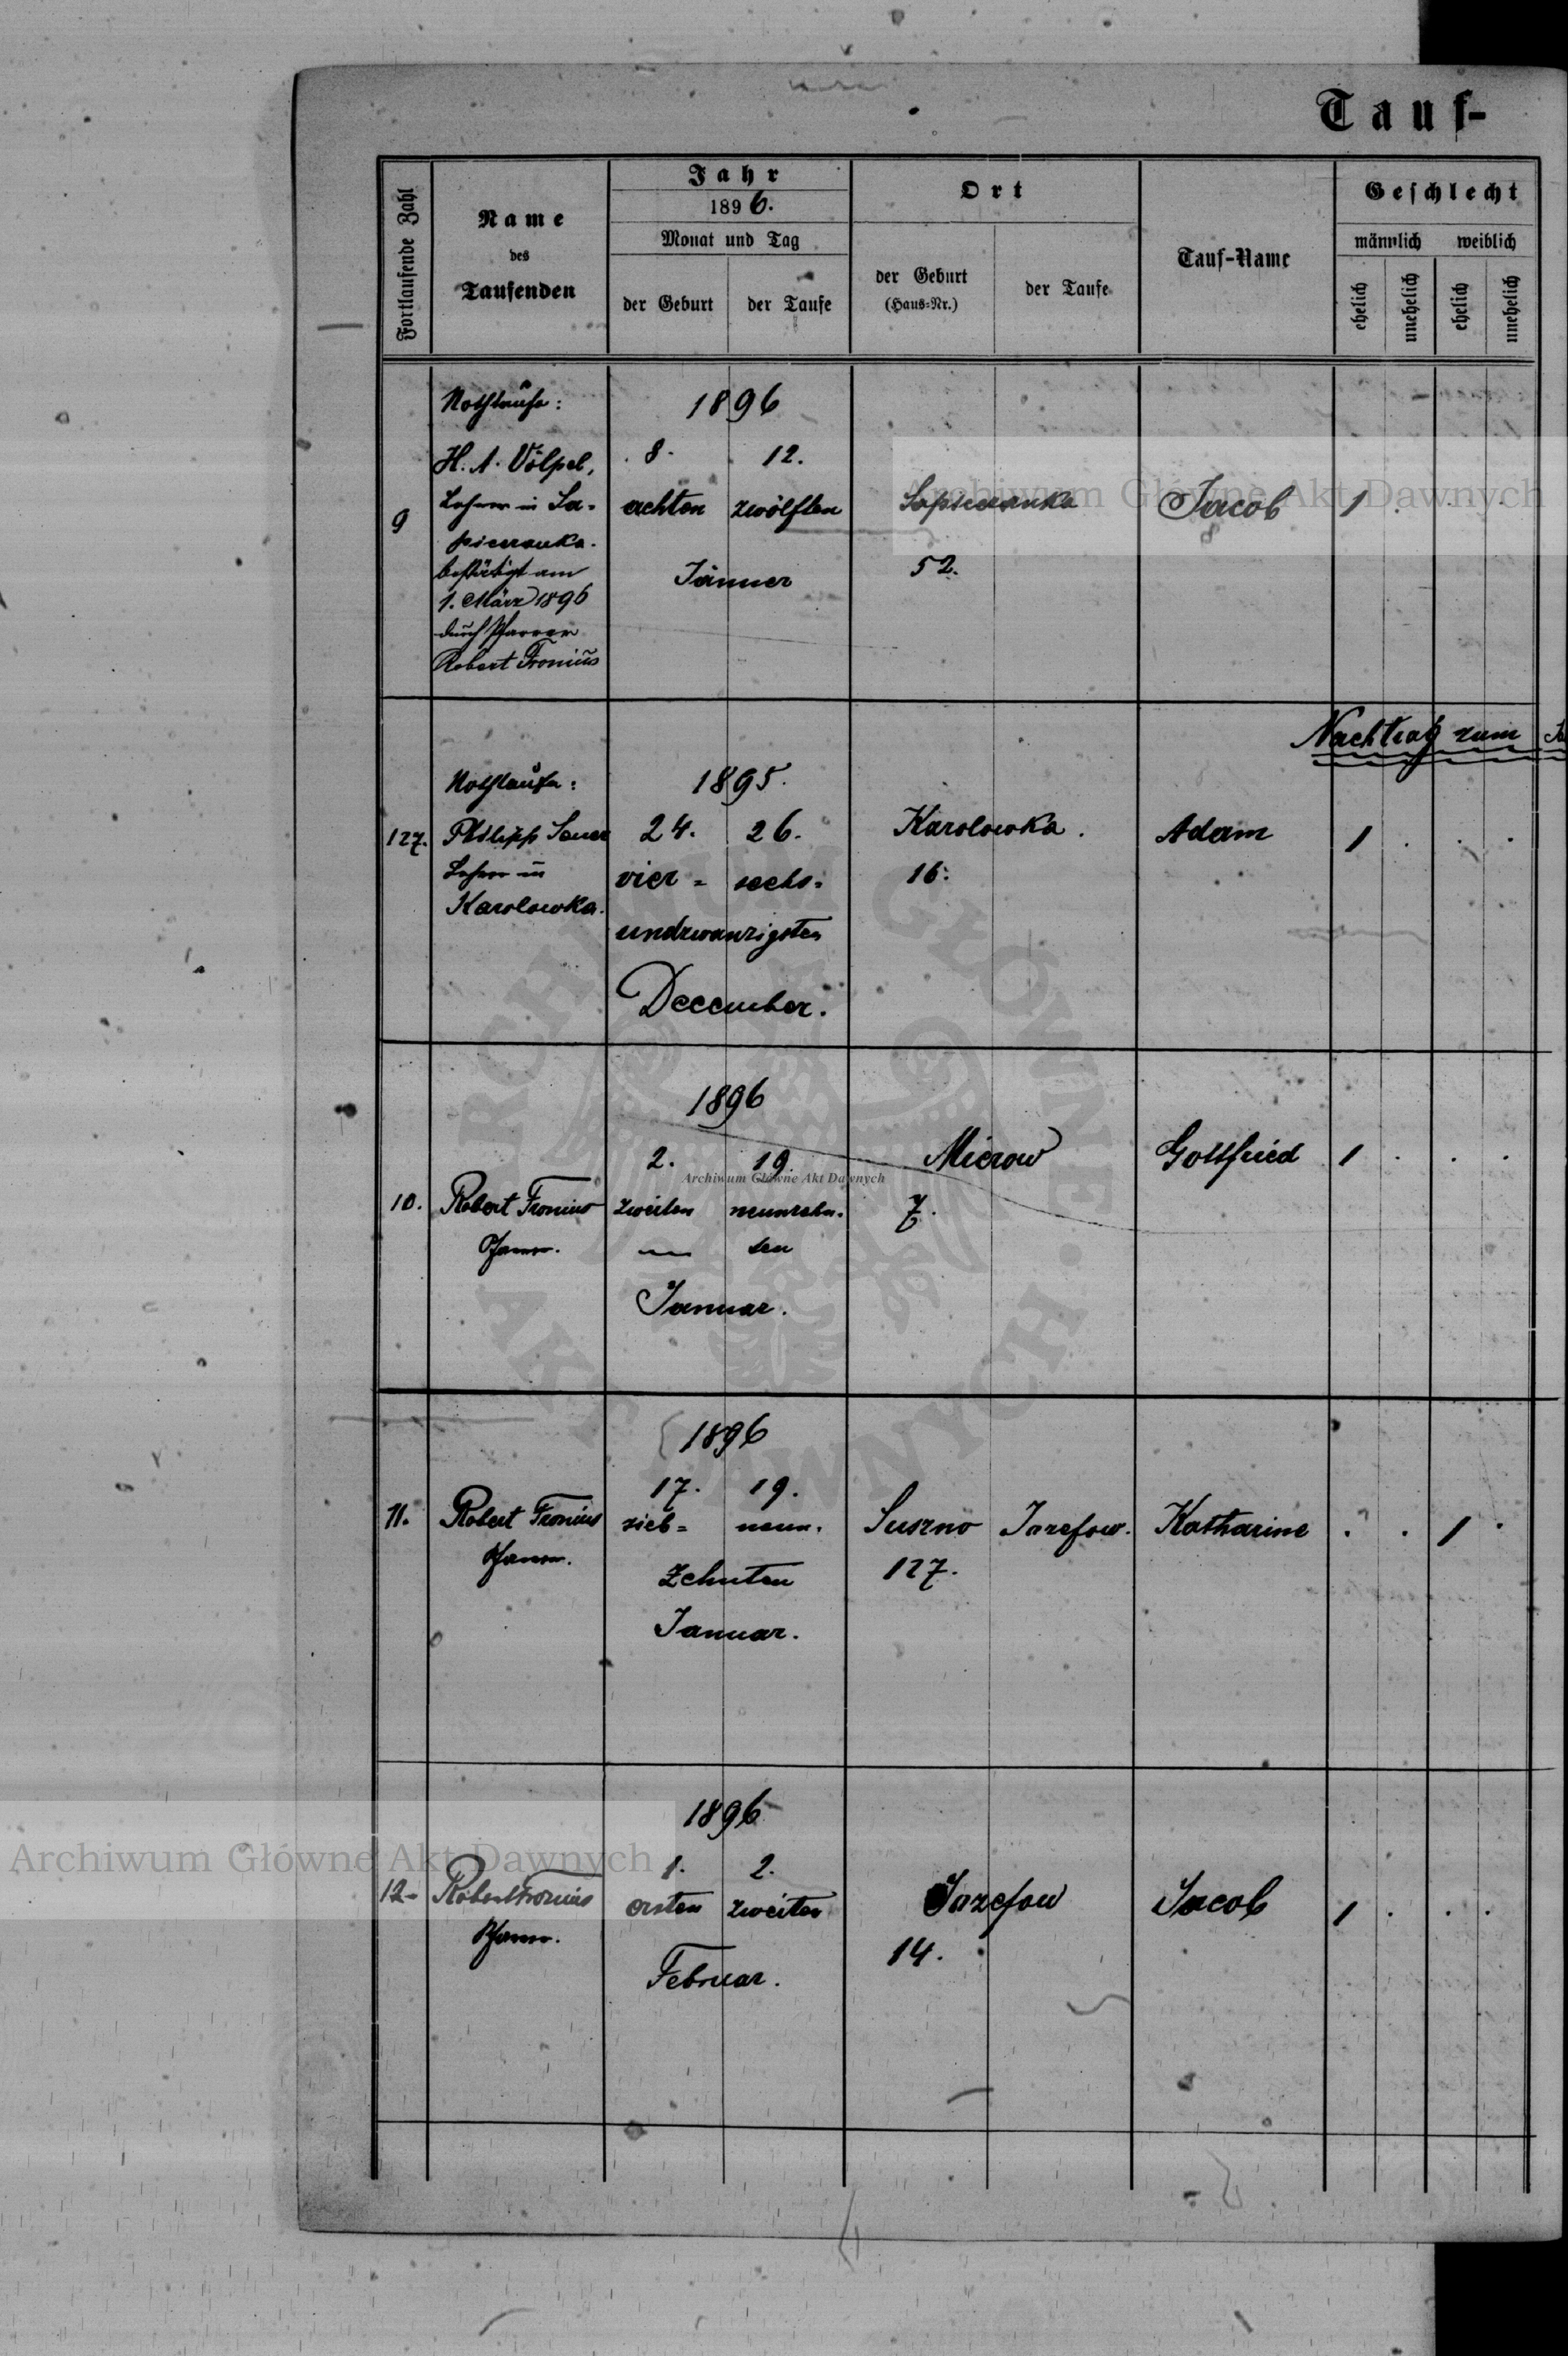 Tauf-
Fortlaufende Zahl
Name
des
Taufenden
Jahr
1896.
Monat und Tag
der Geburt
der Taufe
Ort
der Geburt
(Haus-Nr.)
der Taufe
Tauf-Name
Geschlecht
männlich
weiblich
ehelich
unehelich
ehelich
unehelich
9
Nothtaufe:
H. A. Völpel,
Lehrer in Sa-
pieranka.
bestätigt am
1. März 1896
durch Pfarrer
Robert Fronius
1896
8. 12.
achten zwölften
Jänner
Sapieranka
52.
Jacob
1 . . .
Nachtrag zum
127.
Nothtaufe:
Philipp Sauer
Lehrer in
Karolowka.
1895.
24. 26.
vier= sechs=
undzwanzigsten
December.
Karolowka.
16.
Adam
1 . . .
10.
Robert Fronius
Pfarrer.
1896
2. 19.
zweiten neunzehn-
ten
Januar.
Mierow
7.
Gottfried
1 . . .
11.
Robert Fronius
Pfarrer.
1896
17. 19.
sieb= neun-
zehnten
Januar.
Suszno
127.
Jozefow.
Katharine
. . 1 .
12.
Robert Fronius
Pfarrer.
1896
1. 2.
ersten zweiten
Februar.
Jozefow
14.
Jacob
1 . . .
Archiwum Główne Akt Dawnych
Archiwum Główne Akt Dawnych
Archiwum Główne Akt Dawnych
ARCHIWUM GŁÓWNE AKT DAWNYCH